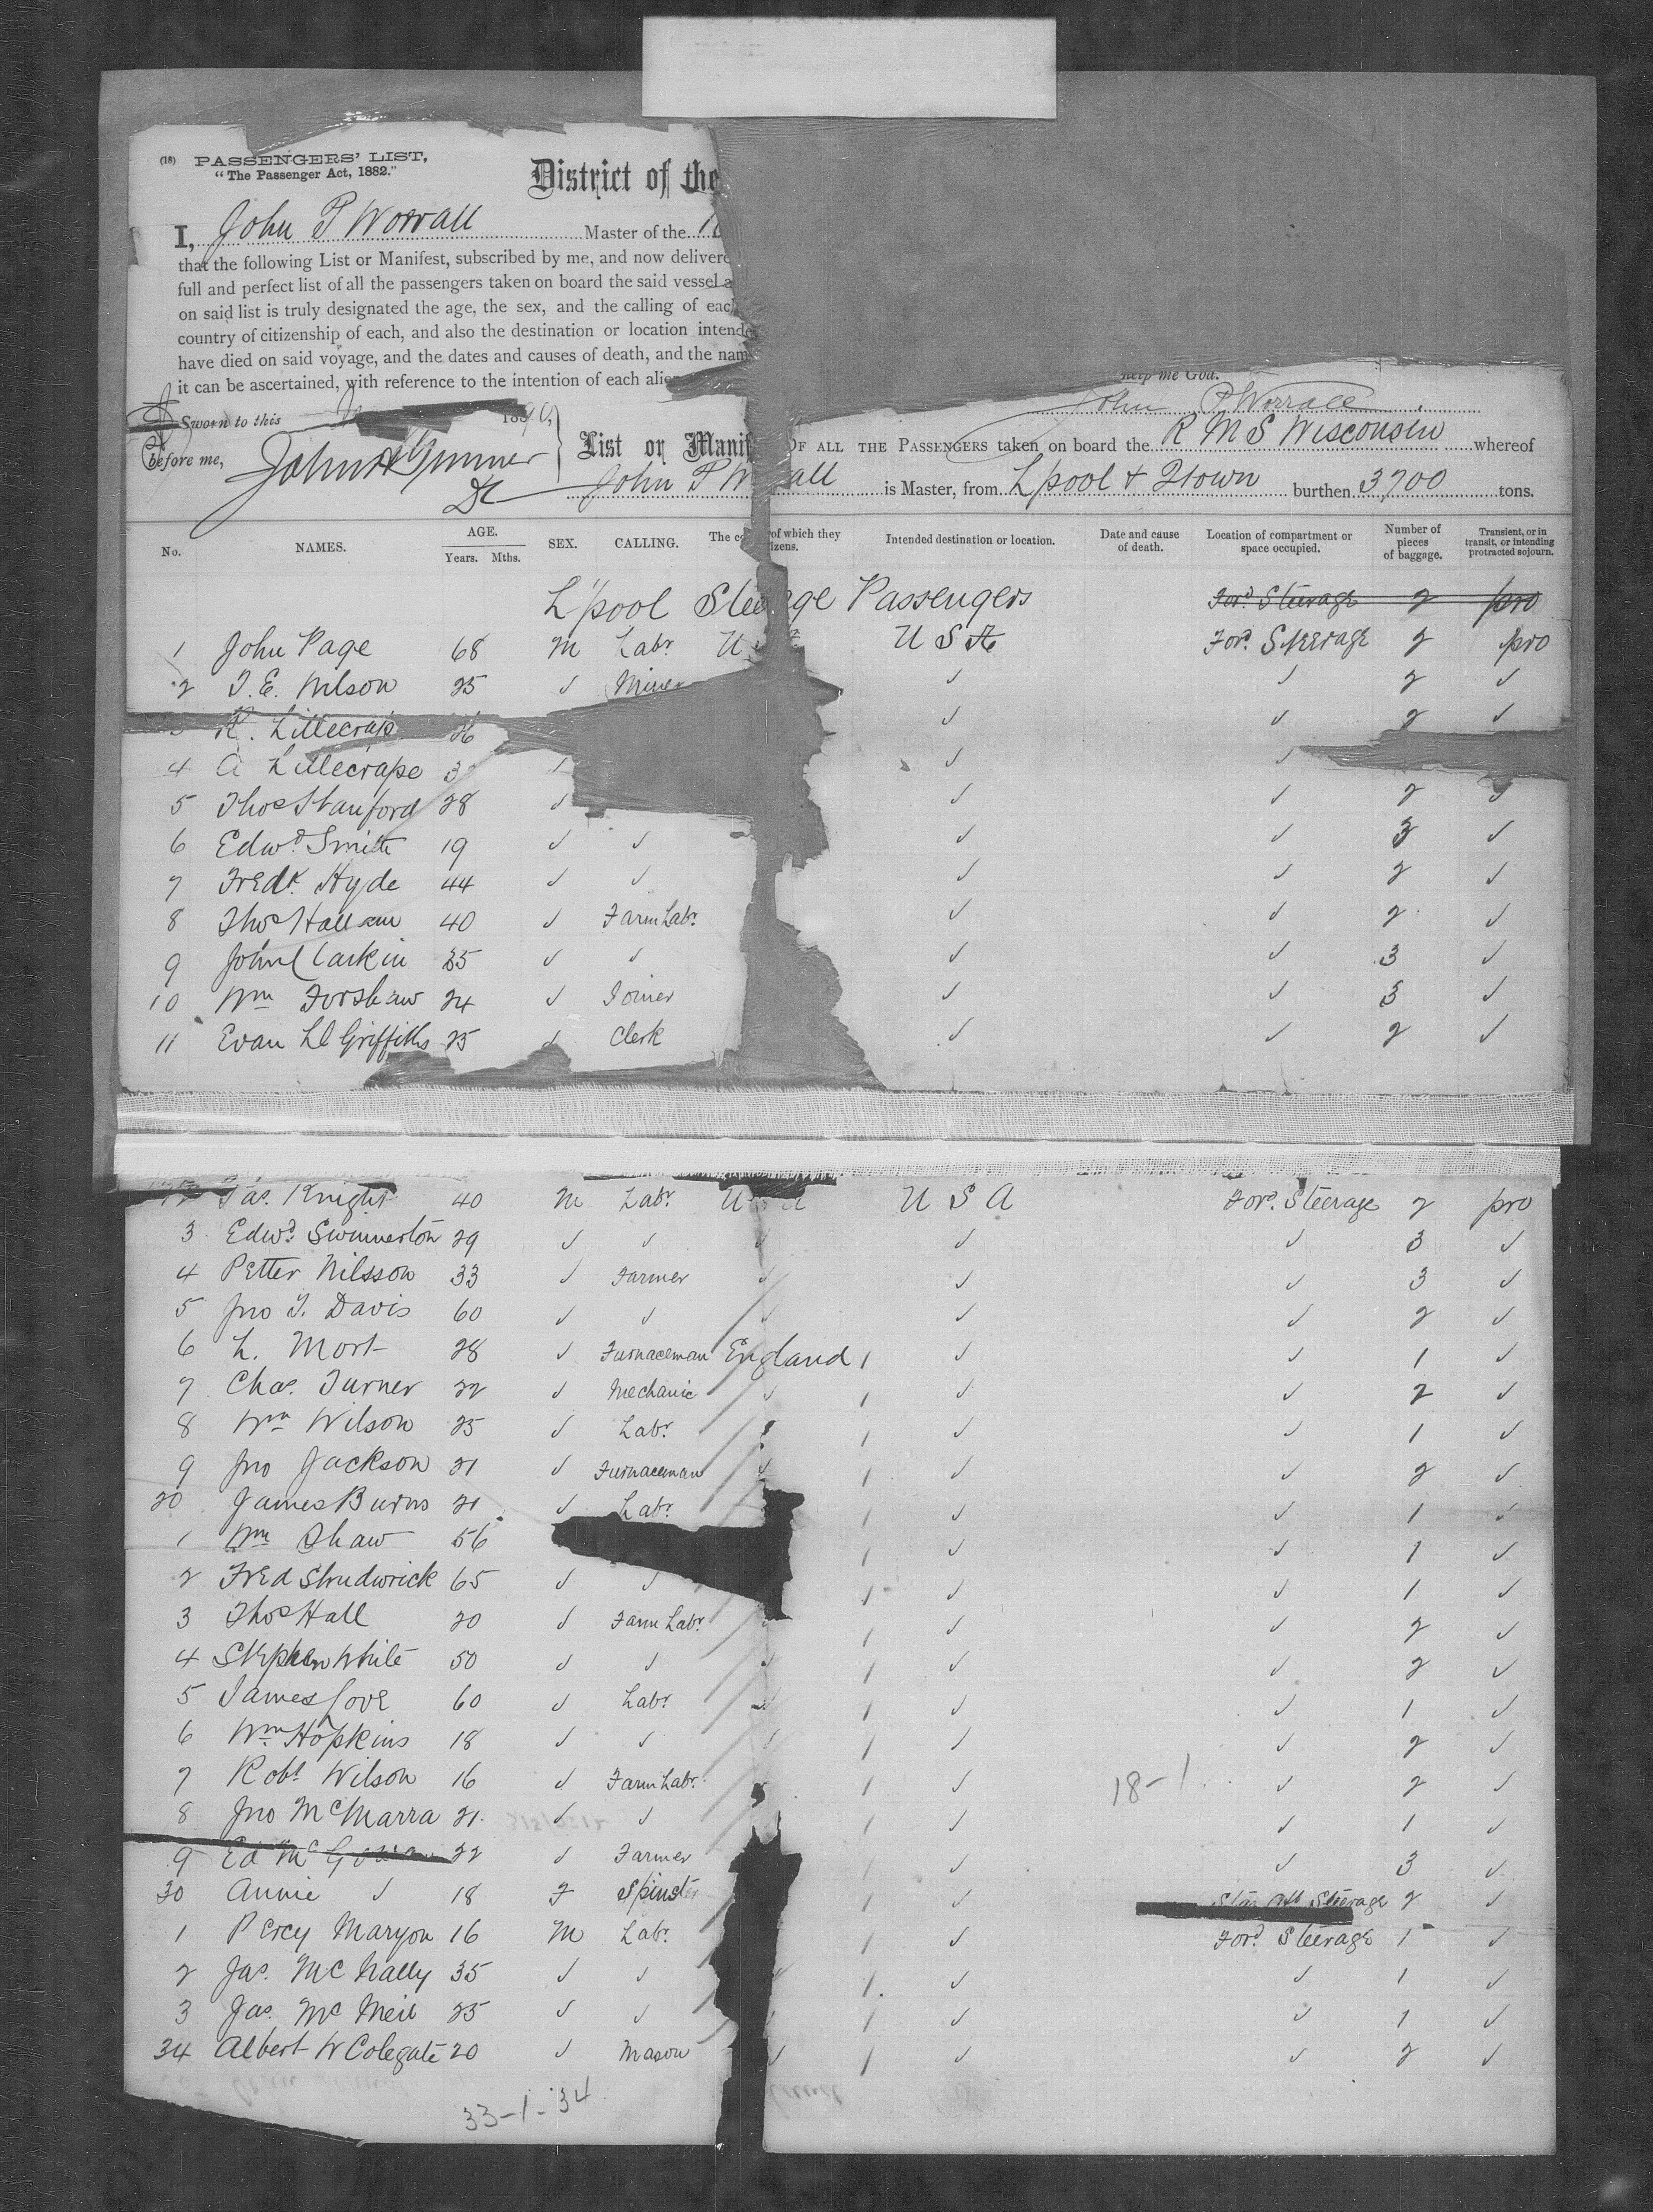 (18) PASSENGERS' LIST,
"The Passenger Act, 1882."
District of the
I, John P Worrall Master of the
that the following List or Manifest, subscribed by me, and now delivere
full and perfect list of all the passengers taken on board the said vessel a
on said list is truly designated the age, the sex, and the calling of eac
country of citizenship of each, and also the destination or location intende
have died on said voyage, and the dates and causes of death, and the nam
it can be ascertained, with reference to the intention of each alie
help me God.
John P Worrall
Sworn to this 1890,
before me,
List or Manif OF ALL THE PASSENGERS taken on board the R M S Wisconsin whereof
John P W all is Master, from L'pool & Qtown burthen 3700 tons.
No. NAMES. AGE. Years. Mths. SEX. CALLING. The co of which they izens. Intended destination or location. Date and cause of death. Location of compartment or space occupied. Number of pieces of baggage. Transient, or in transit, or intending protracted sojourn.
L'pool Steerage Passengers For'd Steerage 2 pro
1 John Page 68 M Labr U U S A For'd Steerage 2 pro
2 T. E. Wilson 25 ✓ Miner ✓ ✓ 2 ✓
R. Lillecrap 26 ✓ ✓ 2 ✓
4 A Lillecrape 3 ✓ ✓ ✓
5 Thos Stanford 28 ✓ ✓ ✓ 2 ✓
6 Edwd Smith 19 ✓ ✓ ✓ ✓ 3 ✓
7 Fredk Hyde 44 ✓ ✓ ✓ ✓ 2 ✓
8 Thos Hallam 40 ✓ Farm Labr ✓ ✓ 2 ✓
9 John Larkin 35 ✓ ✓ ✓ ✓ 3 ✓
10 Wm Forshaw 24 ✓ Joiner ✓ ✓ 3 ✓
11 Evan Ll Griffiths 25 ✓ Clerk ✓ ✓ 2 ✓
12 Jas. Knight 40 M Labr U A U S A For'd Steerage 2 pro
3 Edwd Swinnerton 29 ✓ ✓ ✓ ✓ ✓ 3 ✓
4 Petter Nilsson 33 ✓ Farmer ✓ ✓ ✓ 3 ✓
5 Jno T. Davis 60 ✓ ✓ ✓ ✓ ✓ 2 ✓
6 L. Mort 28 ✓ Furnaceman England 1 ✓ ✓ 1 ✓
7 Chas. Turner 22 ✓ Mechanic ✓ 1 ✓ ✓ 2 ✓
8 Wm Wilson 25 ✓ Labr ✓ 1 ✓ ✓ 1 ✓
9 Jno Jackson 21 ✓ Furnaceman ✓ 1 ✓ ✓ 2 ✓
20 James Burns 21 ✓ Labr 1 ✓ ✓ 1 ✓
1 Wm Shaw 56 1 ✓ ✓ 1 ✓
2 Fred Strudwick 65 ✓ ✓ 1 ✓ ✓ 1 ✓
3 Thos Hall 20 ✓ Farm Labr ✓ 1 ✓ ✓ 2 ✓
4 Stephen White 50 ✓ ✓ ✓ 1 ✓ ✓ 2 ✓
5 James Cove 60 ✓ Labr ✓ 1 ✓ ✓ 1 ✓
6 Wm Hopkins 18 ✓ ✓ ✓ 1 ✓ ✓ 2 ✓
7 Robt Wilson 16 ✓ Farm Labr 1 ✓ 18-1 ✓ 2 ✓
8 Jno McMarra 21 ✓ ✓ 1 ✓ ✓ 1 ✓
9 Ed McGowan 22 ✓ Farmer 1 ✓ ✓ 3 ✓
30 Annie ✓ 18 F Spinster 1 ✓ Steerage 2 ✓
1 Percy Maryon 16 M Labr 1 ✓ For'd Steerage 1 ✓
2 Jas. McNally 35 ✓ ✓ 1 ✓ ✓ 1 ✓
3 Jas. McNeil 25 ✓ ✓ 1 ✓ ✓ 1 ✓
34 Albert W Colegate 20 ✓ Mason ✓ 1 ✓ ✓ 2 ✓
33-1-34